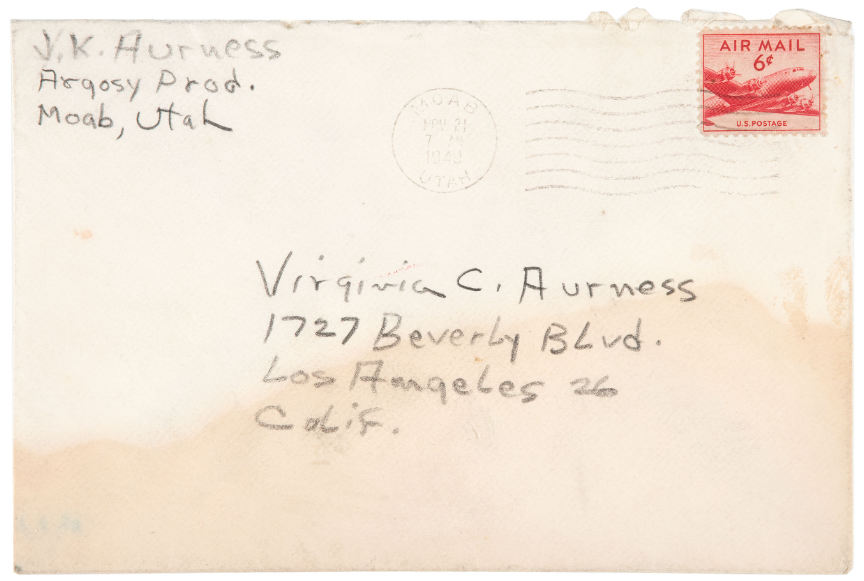 J. K. Aurness
Argosy Prod.
Moab, Utah
MOAB
NOV 21
7
1949
UTAH
AIR MAIL
6¢
U.S. POSTAGE
Virginia C. Aurness
1727 Beverly Blvd.
Los Angeles 26
Calif.